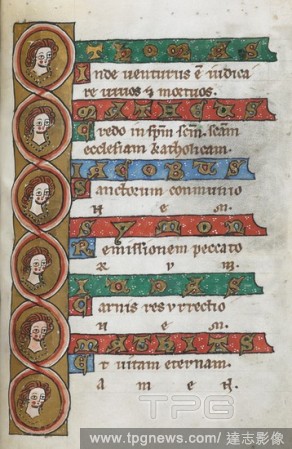 Thomas
Inde venturus ē iudica
re uiuos & mortuos.
Matheus
Credo in spm̄ scm̄. scam̄
ecclesiam katholicam.
Iacobus
Sanctorum communio
n e m.
Symon
Remissionem peccato
r u m.
Iudas
Carnis resurrectio
n e m.
Mathias
Et vitam eternam.
a m e n.
TPG
www.tpgnews.com / 達志影像